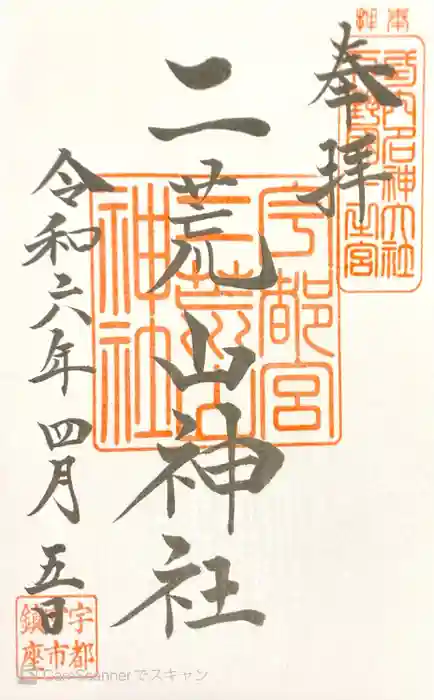 奉拝
二荒山神社
令和六年四月五日
宇都宮
二荒山
神社
宇都
宮市
鎮座
CamScannerでスキャン